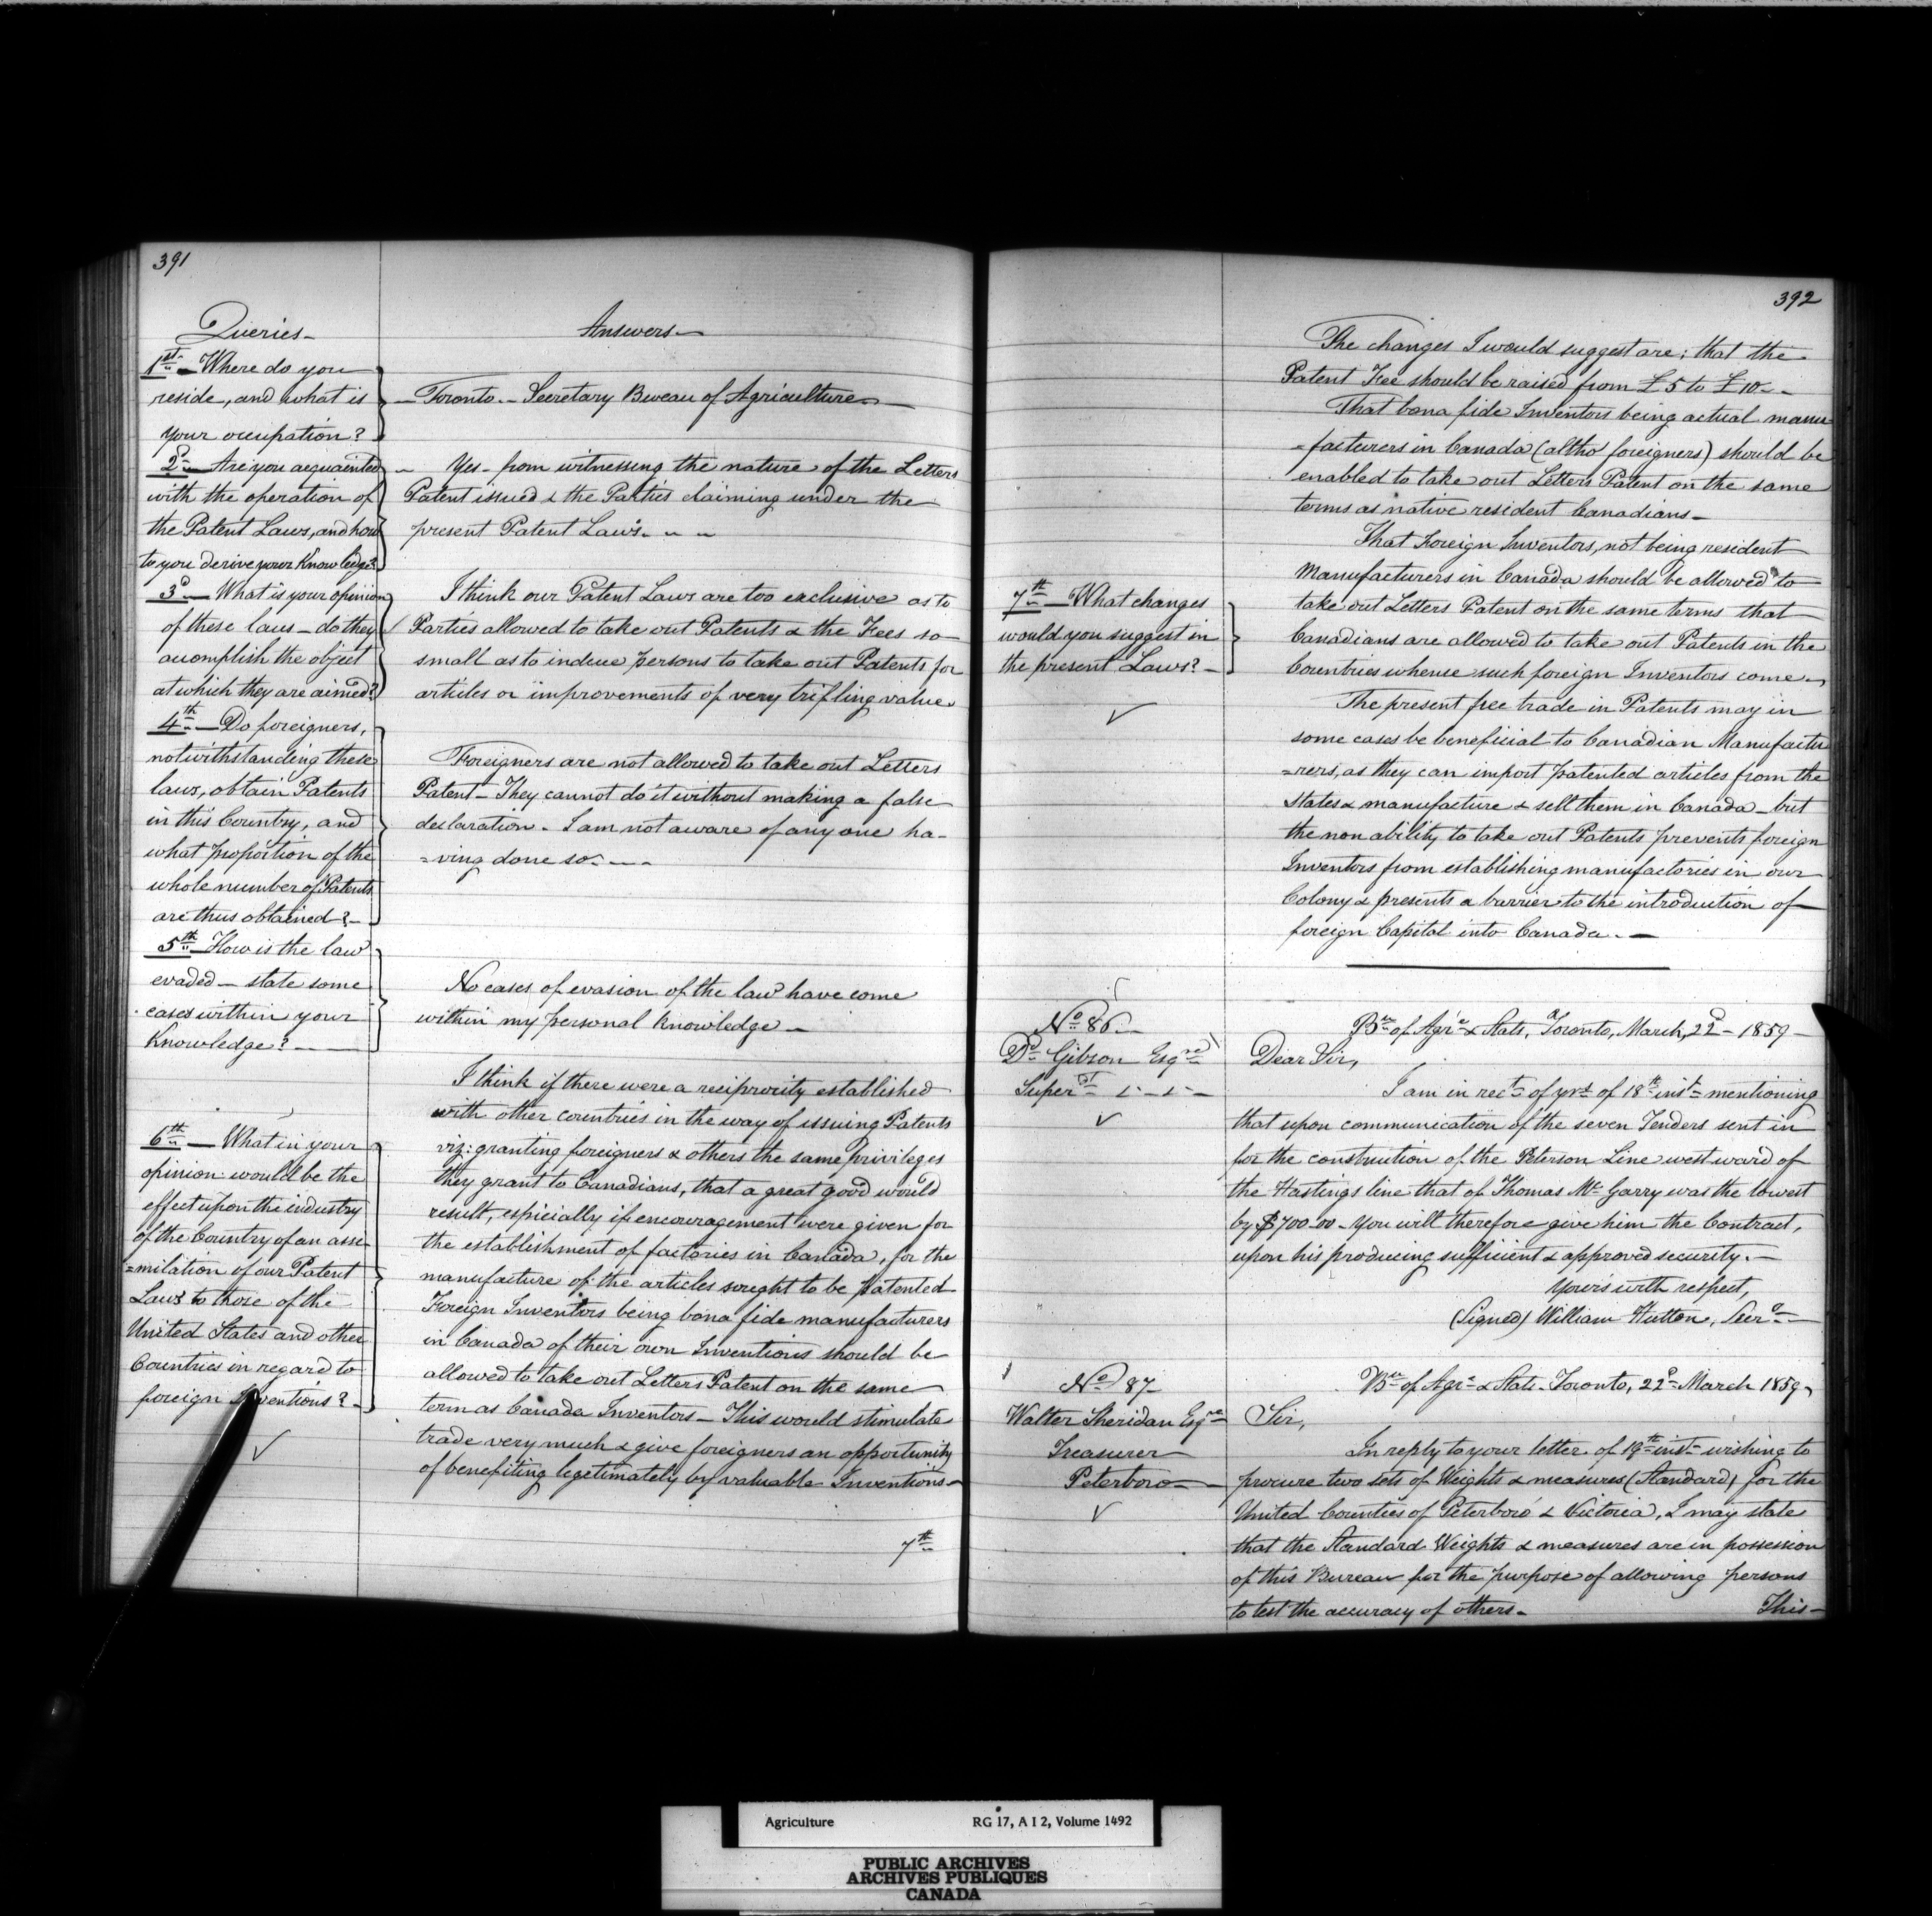 391
Queries-
Answers-
1st - Where do you
reside, and what is
your occupation?
- Toronto - Secretary Bureau of Agriculture -
2d - Are you acquainted
with the operation of
the Patent Laws, and how
to you derive your Knowledge?
Yes - from witnessing the nature of the Letters
Patent issued & the Parties claiming under the
present Patent Laws. - -
3d - What is your opinion
of these laws - do they
acomplish the object
at which they are aimed?
I think our Patent Laws are too exclusive as to
Parties allowed to take out Patents & the Fees so
small as to induce persons to take out Patents for
articles or improvements of very trifling value.
4th - Do foreigners,
notwithstanding these
laws, obtain Patents
in this Country, and
what proportion of the
whole number of Patents
are thus obtained? -
Foreigners are not allowed to take out Letters
Patent - They cannot do it without making a false
declaration. I am not aware of any one ha-
=ving done so. - - -
5th - How is the law
evaded - state some
cases within your
Knowledge? -
No cases of evasion of the law have come
within my personal knowledge -
6th - What in your
opinion would be the
effect upon the industry
of the Country of an assi-
=milation of our Patent
Laws to those of the
United States and other
Countries in regard to
foreign Inventions? -
I think if there were a reciprocity established
with other countries in the way of issuing Patents
viz: granting foreigners & others the same privileges
they grant to Canadians, that a great good would
result, espicially if encouragement were given for
the establishment of factories in Canada, for the
manufacture of the articles sought to be patented
Foreign Inventors being bona fide manufacturers
in Canada of their own Inventions should be
allowed to take out Letters Patent on the same
term as Canada Inventors - This would stimulate
trade very much & give foreigners an opportunity
of benefiting legetimately by valuable Inventions -
7th
392
7th - What changes
would you suggest in
the present Laws? -
The changes I would suggest are; that the
Patent Fee should be raised from £5 to £10 -
That bona fide Inventors being actual manu
=facturers in Canada (altho' foreigners) should be
enabled to take out Letters Patent on the same
terms as native resident Canadians -
That Foreign Inventors, not being resident
Manufacturers in Canada should be allowed to
take out Letters Patent on the same terms that
Canadians are allowed to take out Patents in the
Countries whense such foreign Inventors come -
The present free trade in Patents may in
some cases be beneficial to Canadian Manufactu
=rers, as they can import patented articles from the
States & manufacture & sell them in Canada - but
the non ability to take out Patents prevents foreign
Inventors from establishing manufactories in our
Colony & presents a barrier to the introduction of
foreign Capital into Canada. -
No 86 -
Dd Gibson Esqre
Super
Bu of Agre & Stats, Toronto, March, 22d - 1859 -
Dear Sir,
I am in rect of yrs of 18th inst mentioning
that upon communication of the seven Tenders sent in
for the construction of the Peterson Line westward of
the Hastings line that of Thomas Mc Garry was the lowest
by $700-00 - You will therefore give him the Contract,
upon his producing sufficient & approved security. -
Yours with respect,
(Signed) William Hutton, Secr
No 87 -
Walter Sheridan Esqre
Treasurer
Peterboro -
Bu of Agre & Stats - Toronto, 22d March 1859,
Sir,
In reply to your letter of 19th inst wishing to
procure two sets of Weights & measures (Standard) for the
United Counties of Peterboro' & Victoria, I may state
that the Standard Weights & measures are in possession
of this Bureau for the purpose of allowing persons
to test the accuracy of others -
This -
Agriculture
RG 17, A I 2, Volume 1492
PUBLIC ARCHIVES
ARCHIVES PUBLIQUES
CANADA